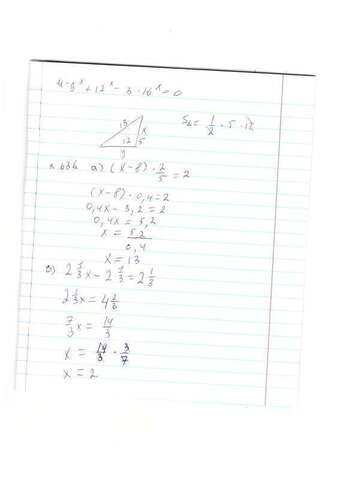 4·9ˣ+12ˣ-3·16ˣ=0
13 x S₆= 1/2 · 5 · 12
12 5
y
N 636 а) (x-8)· 2/5 =2
(x-8)·0,4=2
0,4x-3,2=2
0,4x=5,2
x= 5,2/0,4
x=13
2 1/3 x - 2 1/3 = 2 1/3
2 1/3 x = 4 2/3
7/3 x = 14/3
x = 14/3 · 3/7
x = 2